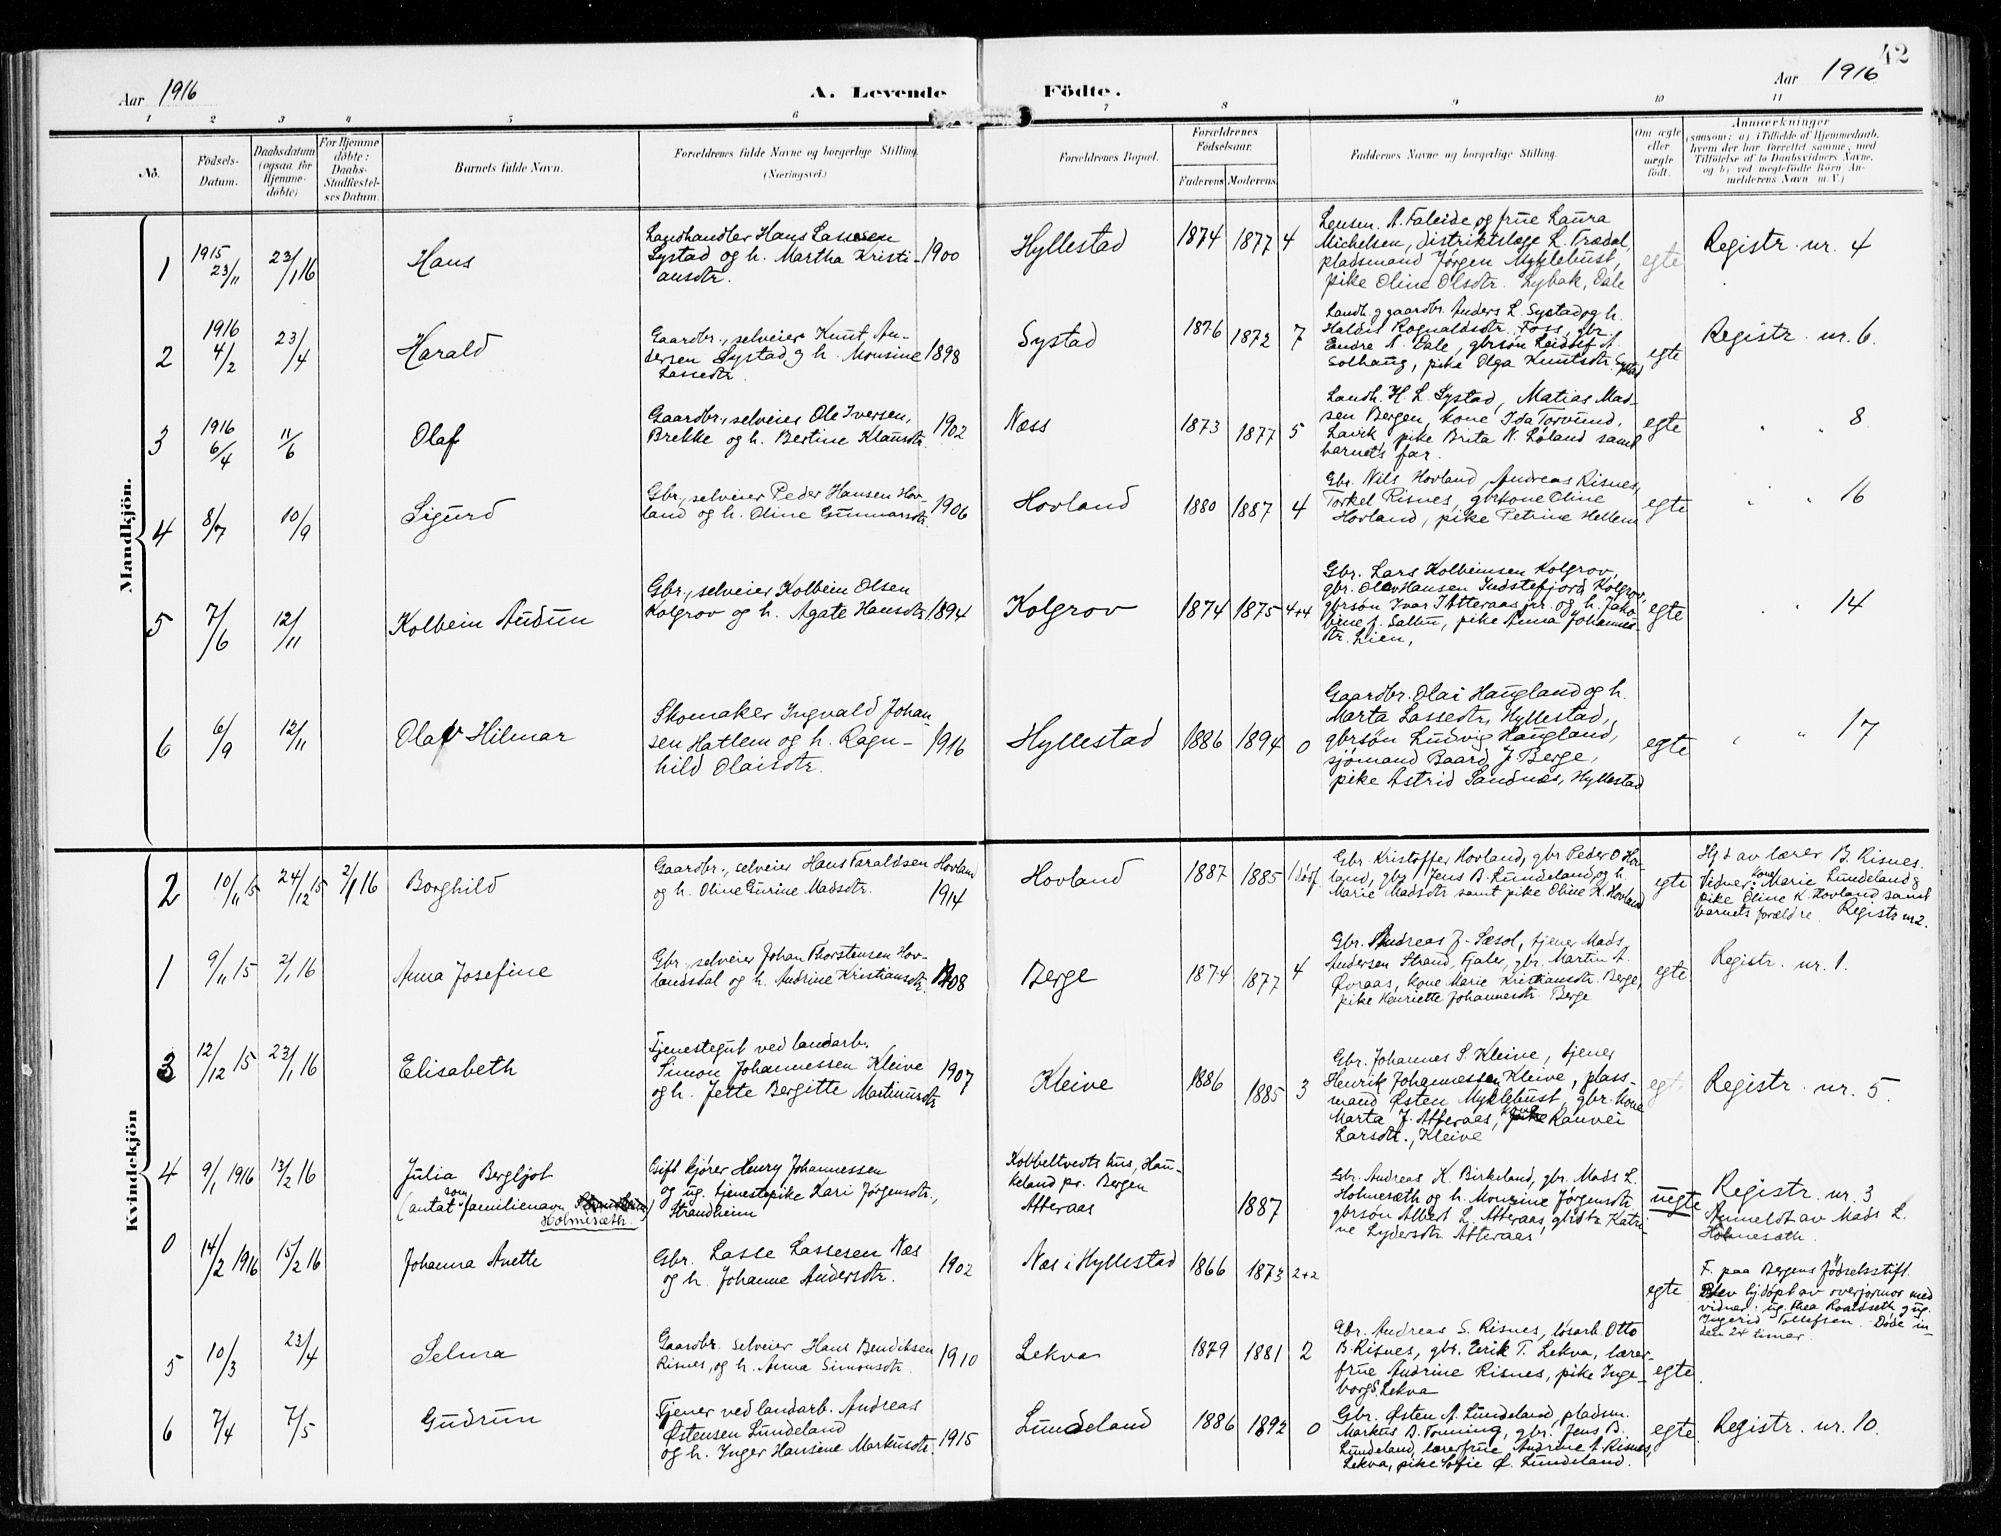 42
Aar 1916
A. Levende Födte.
Aar 1916
1 2 3 4 5 6 7 8 9 10 11
No.
Födsels-Datum.
Daabsdatum (ogsaa for Hjemme-döbte)
For Hjemme döbte: Daabs-Stadfestelses Datum.
Barnets fulde Navn.
Forældrenes fulde Navne og borgerlige Stilling.
(Næringsvei.)
Forældrenes Bopæl.
Forældrenes Fødselsaar.
Faderens Moderens
Faddernes Navne og borgerlige Stilling.
Om ægte eller uægte født.
Anmærkninger
(saasom: a) i Tilfælde af Hjemmedaab,
hvem der har forrettet samme, med
Tilföielse af to Daabsvidners Navne,
og b) ved uægtefödte Börn An-
melderens Navn m. V.)
Mandkjön.
1
1915
23/11
23/1 16
Hans
Landhandler Hans Lassesen
Systad og h. Martha Kristi-
ansdtr.
1900
Hyllestad
1874 1877 4
Lensm. A. Faleide og frue Laura
Michelsen, distriktslæge L. Trædal,
pladsmand Jørgen Myklebust,
pike Oline Olsdtr. Lybak, Dale
egte
Registr. nr. 4
2
1916
4/2
23/4
Harald
Gaardbr., selveier Knut An-
dersen Systad og h. Monsine
Lassedtr.
1898
Systad
1876 1872 7
Landh. g gaardbr. Anders L. Systad og h.
Haldis Rognaldsdtr. Foss, gbr.
Endre A. Dale, gbrsøn Leidolf A.
Solhaug, pike Olga Knutsdtr. Systad
egte
Registr. nr. 6.
3
1916
6/4
11/6
Olaf
Gaardbr., selveier Ole Iversen,
Brekke og h. Bertine Klausdtr.
1902
Næss
1873 1877 5
Landh. H. L. Systad, Matias Mad-
sen Bergen, kone Ida Torvund,
Lavik, pike Brita N. Løland samt
barnets far.
egte
" " 8
4
8/7
10/9
Sigurd
Gbr., selveier Peder Hansen Hov-
land og h. Oline Gunnarsdtr.
1906
Hovland
1880 1887 4
Gbr. Nils Hovland, Andreas Risnes,
Torkel Risnes, gbrkone Oline
Hovland, pike Petrine Hellem
egte
" " 16
5
7/6
12/11
Kolbein Audun
Gbr., selveier Kolbein Olsen
Kolgrov og h. Agate Hansdtr.
1894
Kolgrov
1874 1875 4+4
Gbr. Lars Kolbeinsen Kolgrov,
gbr. Olav Hansen Indstefjord, Kolgrov,
gbrsøn Ivar I Atteraas jr. og h. Jako-
bine f. Saltu, pike Anna Johannes-
dtr. Lien,
egte
" " 14
6
6/9
12/11
Olav Hilmar
Skomaker Ingvald Johan-
sen Hatlem og h. Ragn-
hild Olaisdtr.
1916
Hyllestad
1886 1894 0
Gaardbr. Olai Haugland og h.
Marta Lassedtr, Hyllestad,
gbrsøn Ludvig Haugland,
sjømand Baard J Berge,
pike Astrid Sandnæs, Hyllestad
egte
" " 17
Kvindekjön
2
10/11 15
24/12 15
2/1 16
Borghild
Gaardbr., selveier Hans Faraldsen Hovland
og h. Oline Gurine Madsdtr.
1914
Hovland
1887 1885 1 døf.
Gbr. Kristoffer Hovland, gbr Peder O Hov-
land, gbr. Jens B. Lundeland og h.
Marie Madsdtr samt pike Oline K. Hovland
egte
Hjd av lærer B. Risnes.
Vidner: kone Marie Lundeland g
pike Oline K. Hovland samt
barnets forældre. Registr nr 2.
1
9/11 15
2/1 16
Anna Josefine
Gbr., selveier Johan Thorstensen Hov-
landsdal og h. Andrine Kristiansdtr.
1908
Berge
1874 1877 4
Gbr. Andreas J. Sæsol, tjener Mads
Andersen Strand, Fjaler, gbr. Martin A.
Øvraas, kone Marie Kristiansdtr. Berge,
pike Henriette Johannesdtr. Berge
egte
Registr. nr. 1.
3
12/12 15
23/1 16
Elisabeth
Tjenestegut ved landarb.
Simon Johannessen Kleive
og h. Jette Bergitte Martinusdtr
1907
Kleive
1886 1885 3
Gbr. Johannes S. Kleive, tjener
Henrik Johannessen Kleive, plass-
mand Østen Myklebust, gbr. kone
Marta J. Atteraas, kone Ranvei
Larsdtr., Kleive
egte
Registr. nr. 5.
4
9/1 1916
13/2 16
Julia Bergljot
(antat som familienavn Holmesæth)
Gift kjører Henry Johannessen
og ug. tjenestepike Kari Jørgensdtr.,
Strandheim
Kobbeltvedts hus, Hau-
keland pr. Bergen
Atteraas
1887
Gbr. Andreas K. Birkeland, gbr. Mads L.
Holmesæth og h. Monsine Jørgensdtr
gbrsøn Albert L. Atteraas, gbrdtr Katri-
ne Lydersdtr. Atteraas
uegte
Registr. nr. 3
Anmeldt av Mads L.
Holmesæth.
0
14/2 1916
15/2 16
Johanna Anette
Gbr. Lasse Lassesen Næs
og h. Johanne Andersdtr.
1902
Næs i Hyllestad
1866 1873 2+2
egte
F. paa Bergens fødselsstift.
Blev hjdøpt av overjormor med
vidner: ug. Thea Roaldseth g ug.
Ingerid Tollefsen. Døde in-
den 24 timer.
5
10/3
23/4
Selma
Gaardbr. selveier Hans Bendiksen
Risnes, og h. Anna Simonsdtr.
1910
Lekva
1879 1881 2
Gbr. Andreas S. Risnes, løsarb. Otto
B. Risnes, gbr. Eirik T. Lekva, lærer-
frue Andrine Risnes, pike Inge-
borg S. Lekva
egte
6
7/4
7/5
Gudrun
Tjener ved landarb. Andreas
Østensen Lundeland
og h. Inger Hansine Markusdtr.
1915
Lundeland
1886 1892 0
Gbr. Østen A. Lundeland, pladsm.
Markus B. Tonning, gbr. Jens B.
Lundeland, lærerfrue Andrine A. Risnes,
Lekva, pike Sofie Ø. Lundeland.
egte.
Registr. nr. 10.